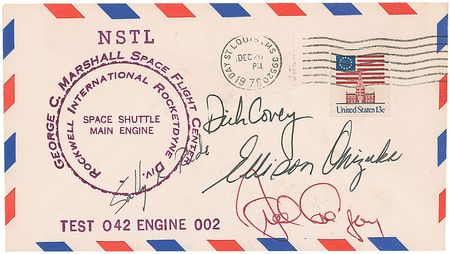 NSTL
GEORGE C. MARSHALL SPACE FLIGHT CENTER
ROCKWELL INTERNATIONAL ROCKETDYNE DIV.
SPACE SHUTTLE
MAIN ENGINE
BAY ST LOUIS, MS 39520
DEC 20
PM
1978
United States 13c
Dick Covey
Ellison Onizuka
Sally Ride
TEST 042 ENGINE 002